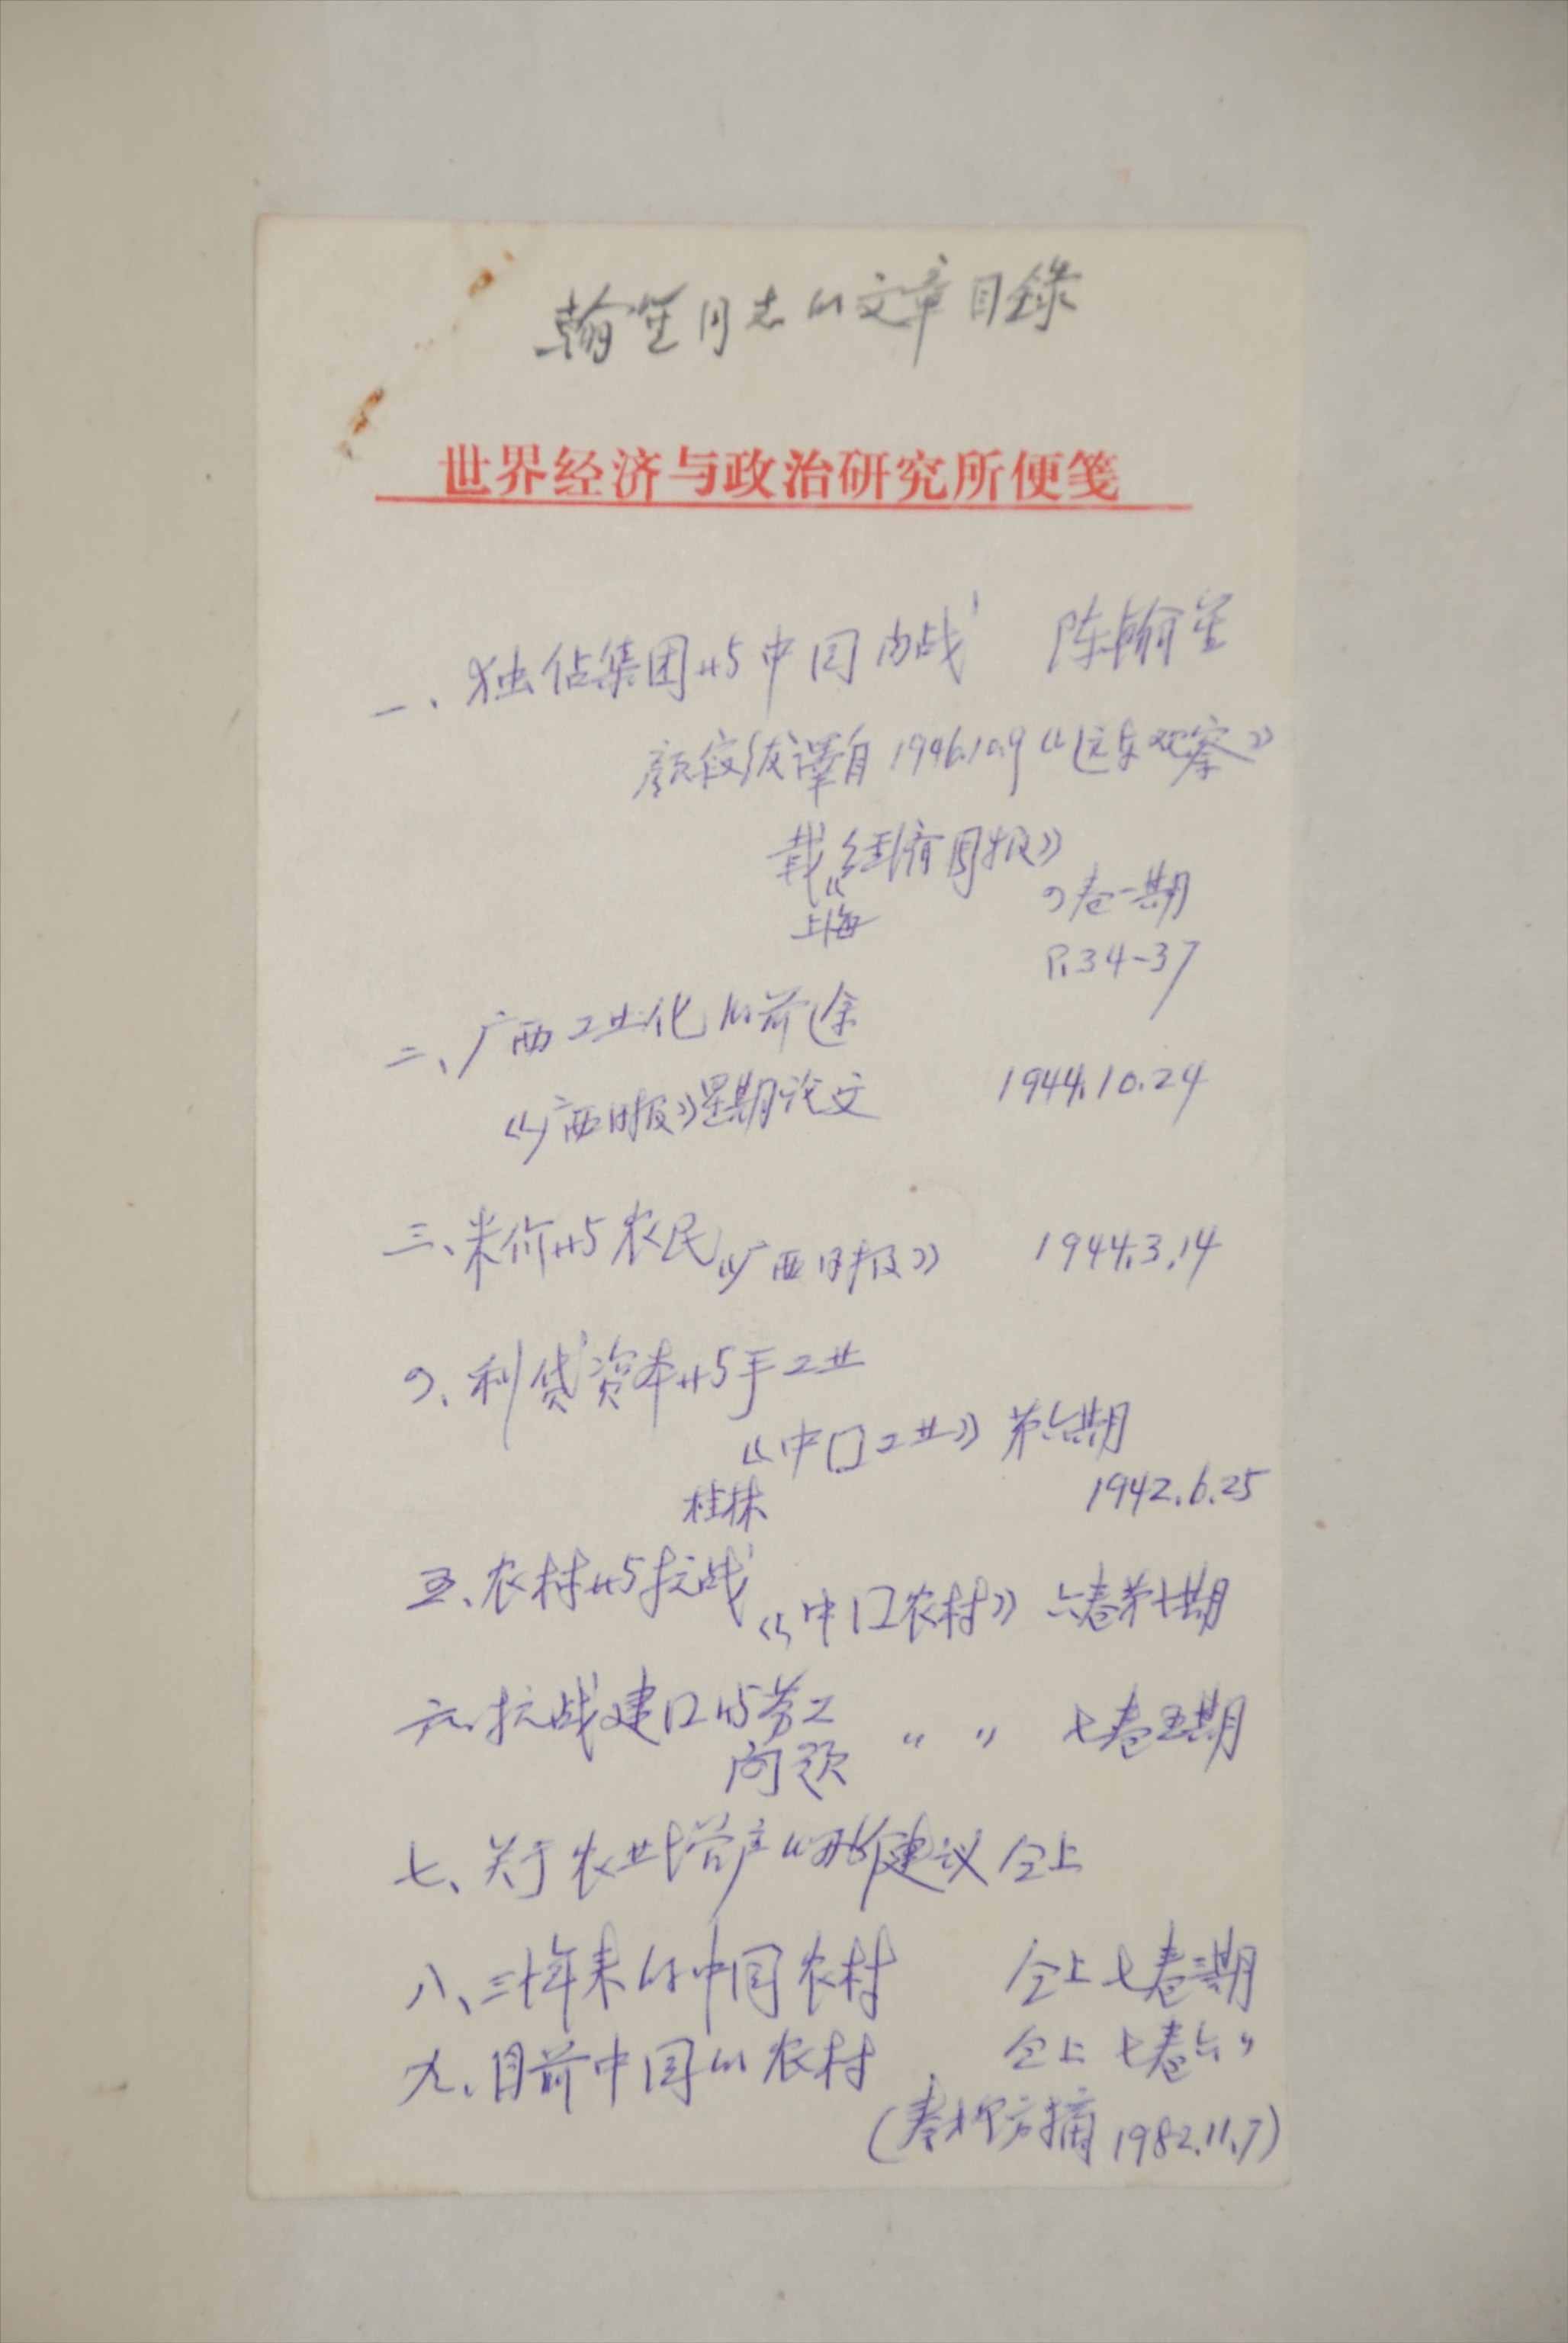 翰笙同志的文章目録
世界经济与政治研究所便笺
一、独佔集团与中国内战 陈翰笙
译自1946.10.9《远东观察》
载《经济周报》
上海 四卷一期
P.34-37
二、广西工业化的前途
《广西日报》星期论文 1944.10.24
三、米价与农民《广西日报》 1944.3.14
四、利贷资本与手工业
《中囗工业》第六期
桂林 1942.6.25
五、农村与抗战《中囗农村》六卷第七期
六、抗战建囗与劳工 〃 〃 七卷五期
问题
七、关于农业增产的建议 仝上
八、三十年来的中国农村 仝上七卷三期
九、目前中国的农村 仝上七卷六〃
(秦柳方摘 1982.11.7)